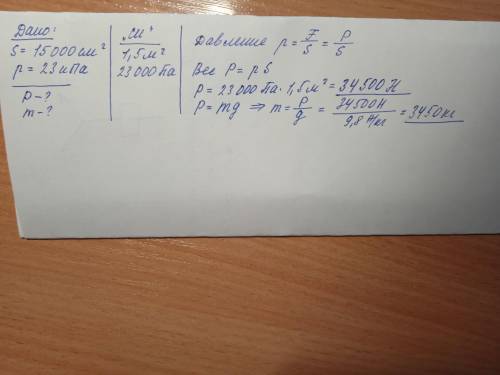 Дано:
S = 15000 см²
p = 23 кПа
P - ?
m - ?
"СИ"
1,5 м²
23 000 Па
Давление p = F/S = P/S
Вес P = pS
P = 23 000 Па · 1,5 м² = 34500 Н
P = mg ⇒ m = P/g = 34500 Н / 9,8 Н/кг = 3450 кг